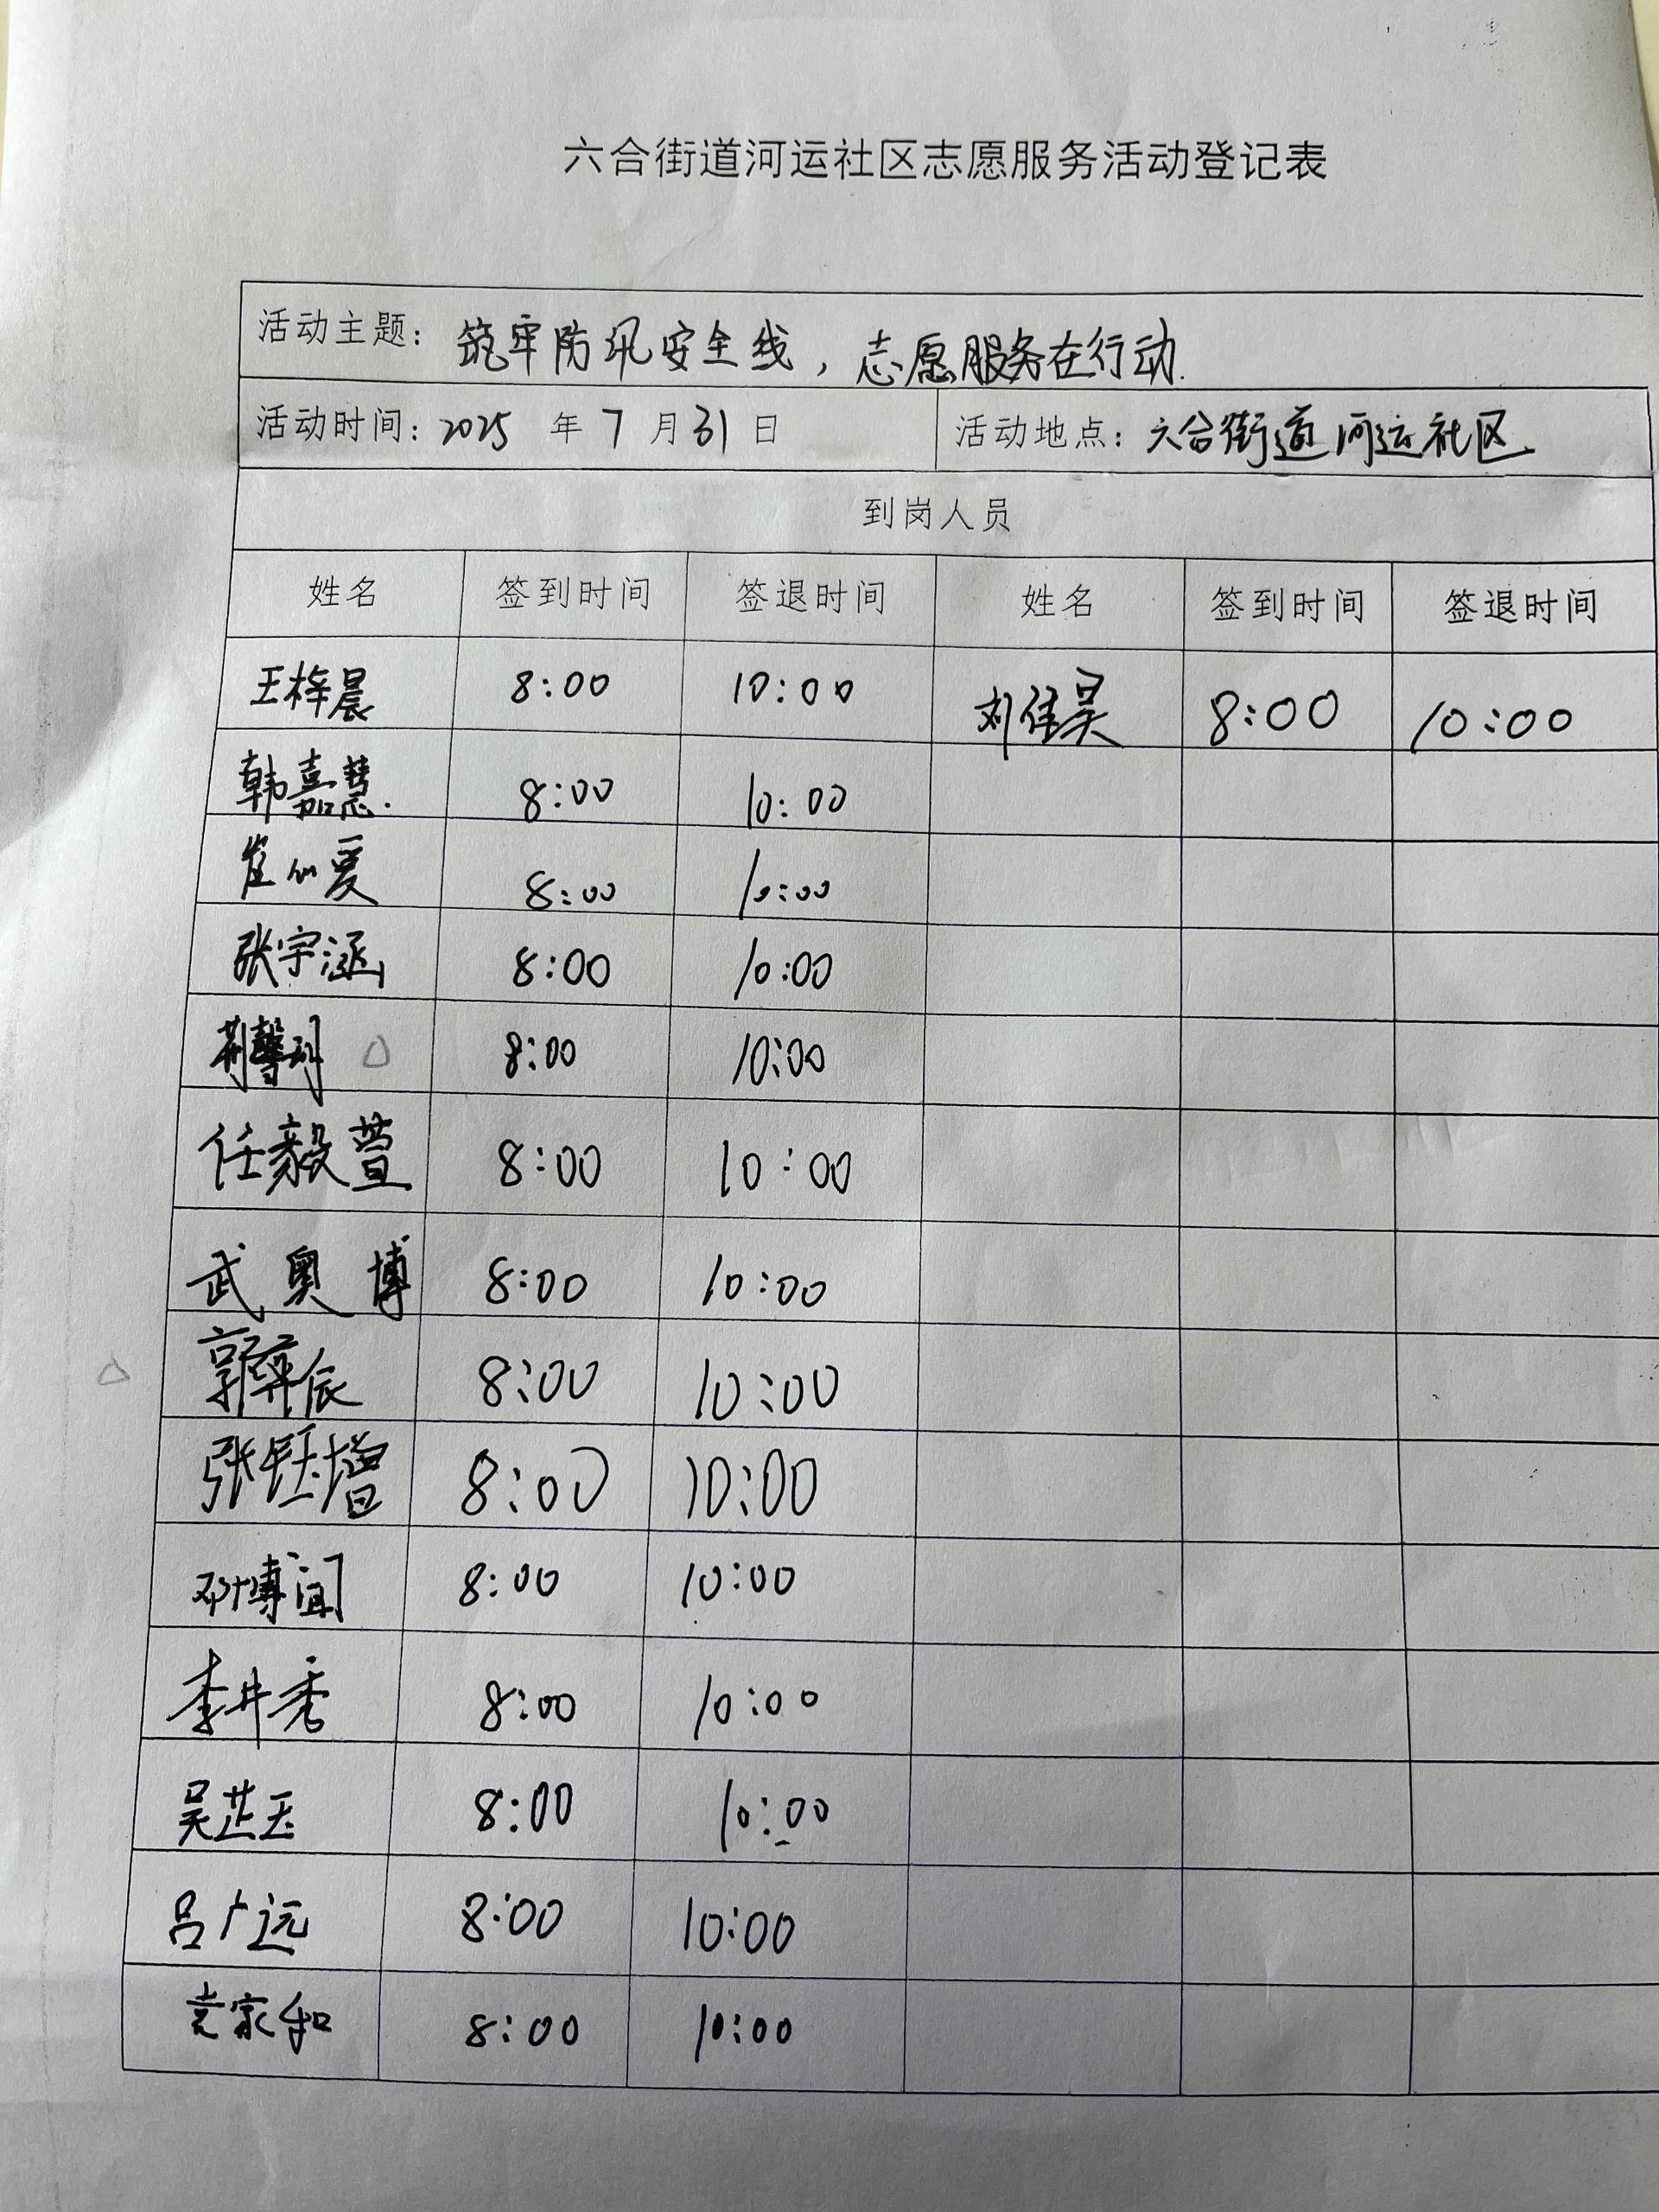 六合街道河运社区志愿服务活动登记表
活动主题：筑牢防汛安全线，志愿服务在行动.
活动时间：2025 年 7 月 31 日 活动地点：六合街道河运社区
到岗人员
姓名 签到时间 签退时间 姓名 签到时间 签退时间
王梓晨 8:00 10:00 刘佳昊 8:00 10:00
韩嘉慧. 8:00 10:00
崔心爱 8:00 10:00
张宇涵 8:00 10:00
荆馨 8:00 10:00
任毅萱 8:00 10:00
武奥博 8:00 10:00
郭弈辰 8:00 10:00
张钰增 8:00 10:00
邓博闻 8:00 10:00
李井秀 8:00 10:00
吴芷玉 8:00 10:00
吕广远 8:00 10:00
袁家和 8:00 10:00